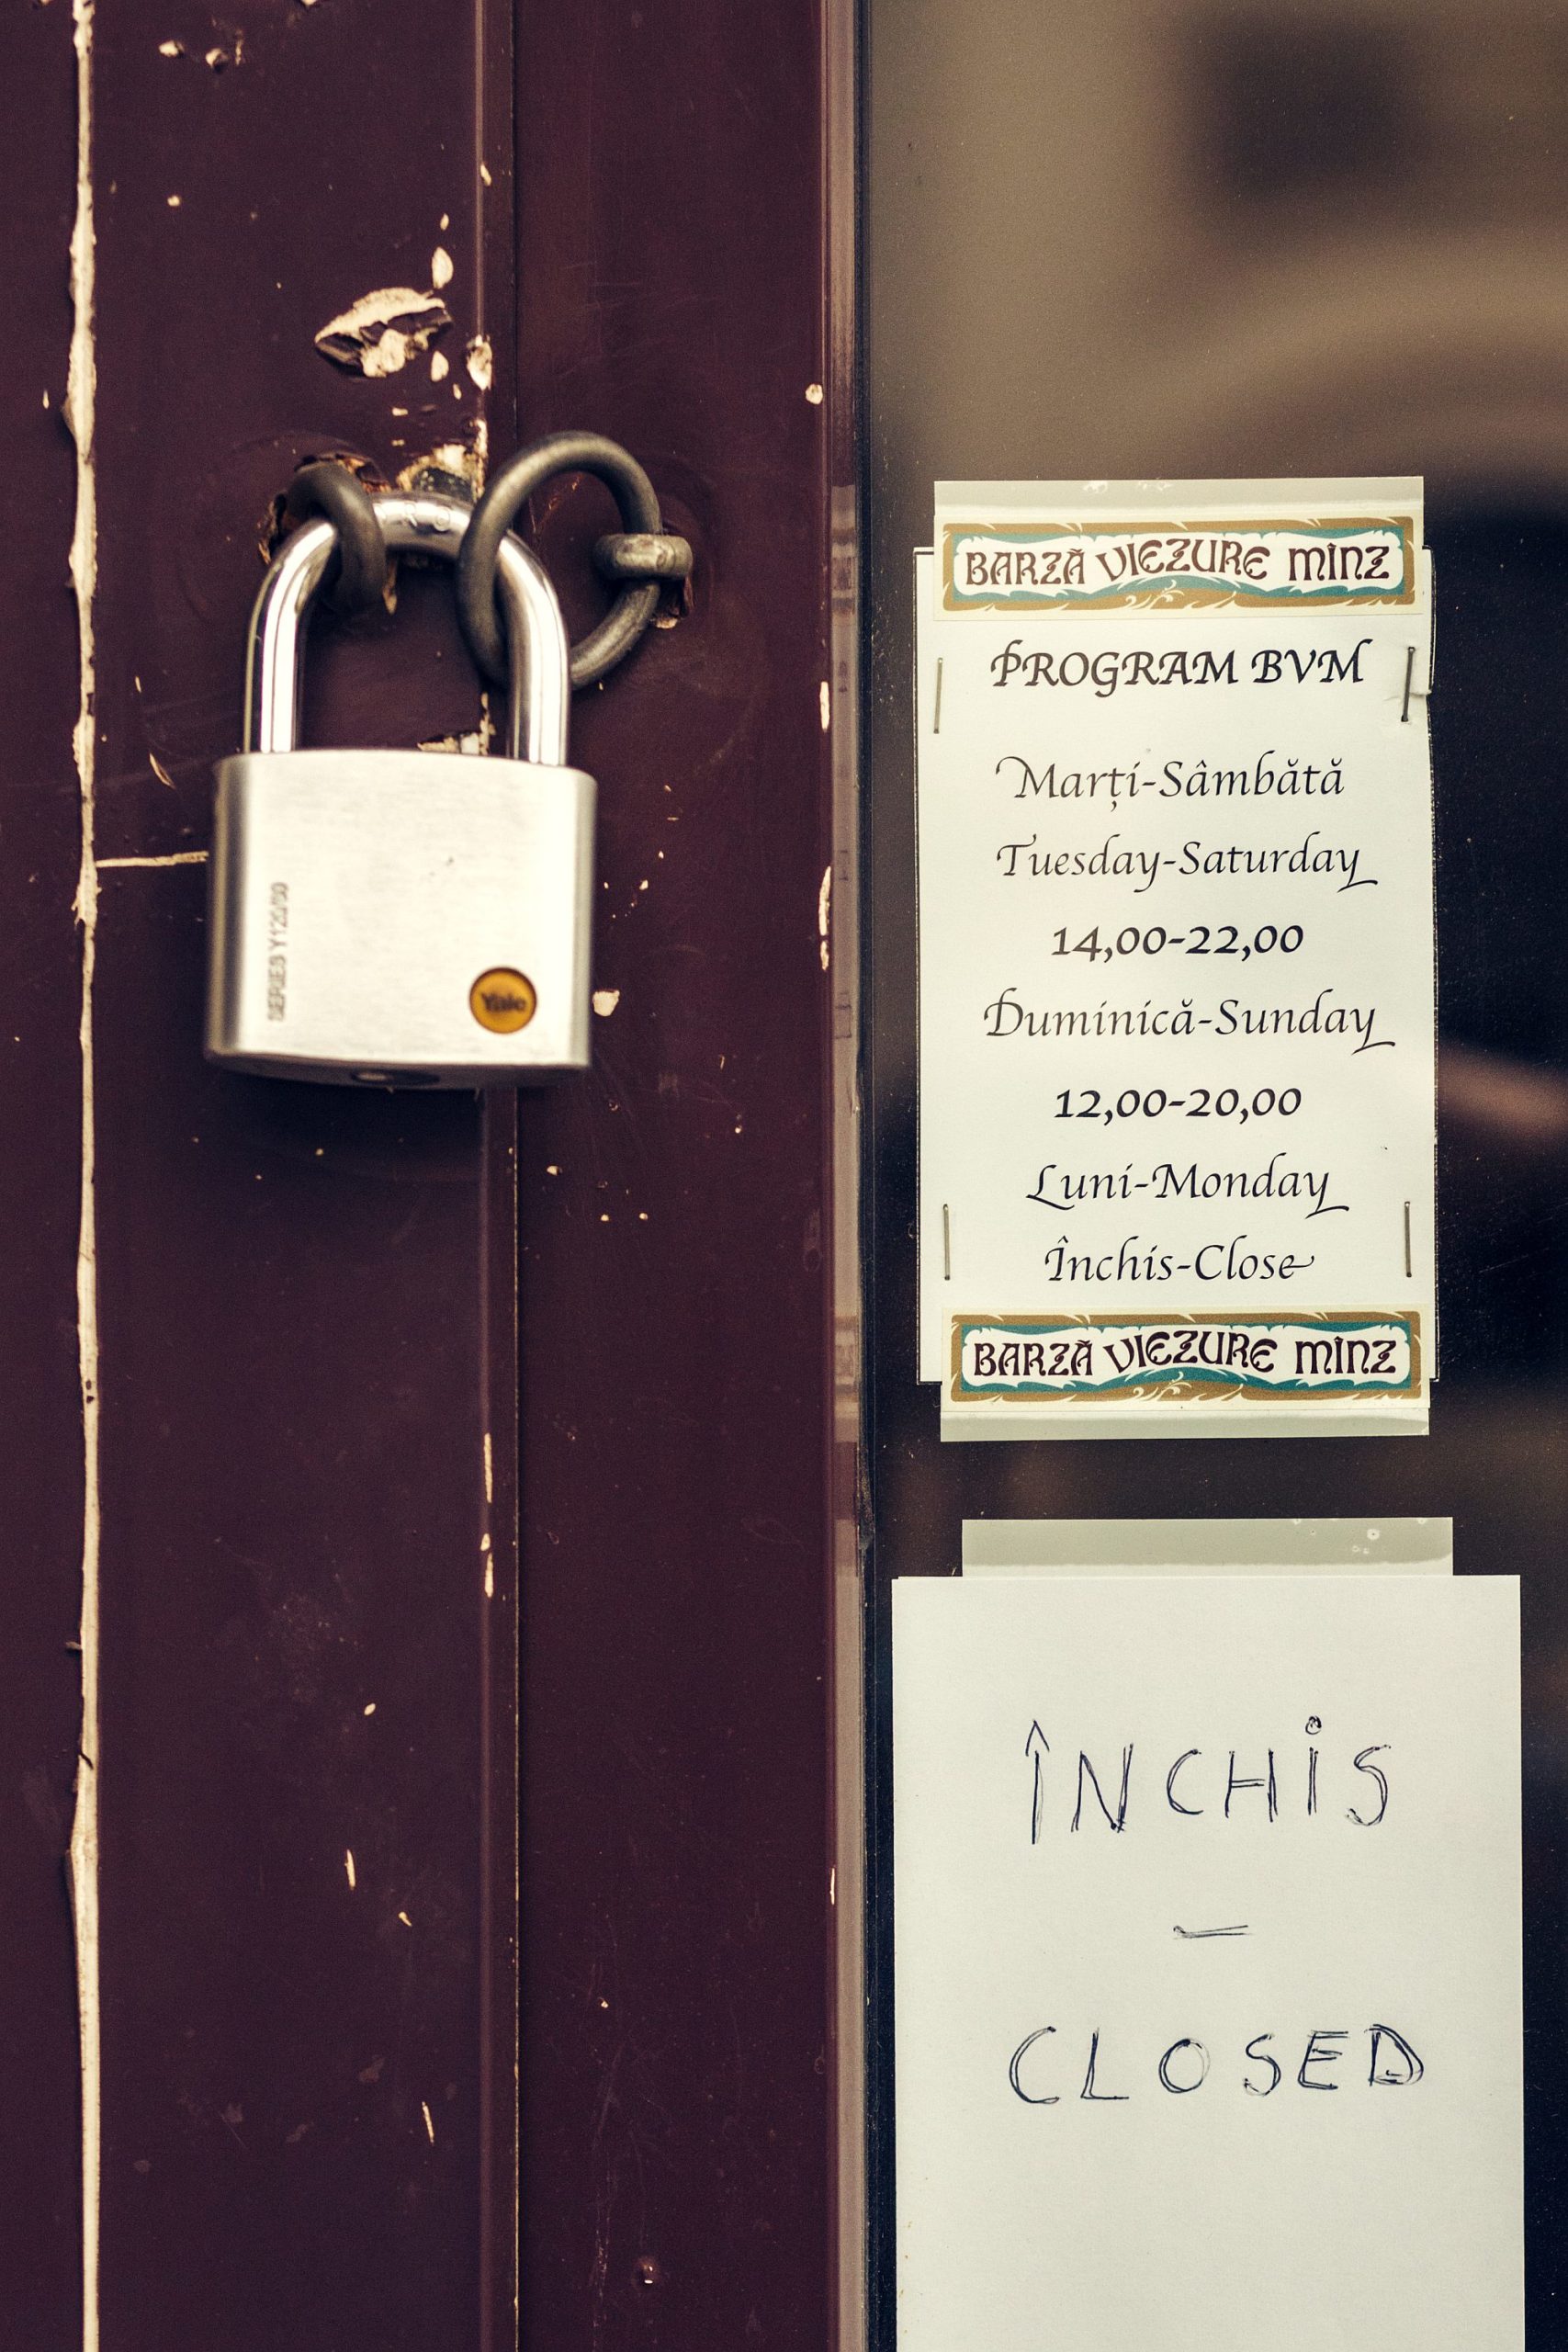 SERIES Y120/60
Yale
BARZĂ VIEZURE MÎNZ
PROGRAM BVM
Marți-Sâmbătă
Tuesday-Saturday
14,00-22,00
Duminică-Sunday
12,00-20,00
Luni-Monday
Închis-Close
BARZĂ VIEZURE MÎNZ
ÎNCHIS
-
CLOSED